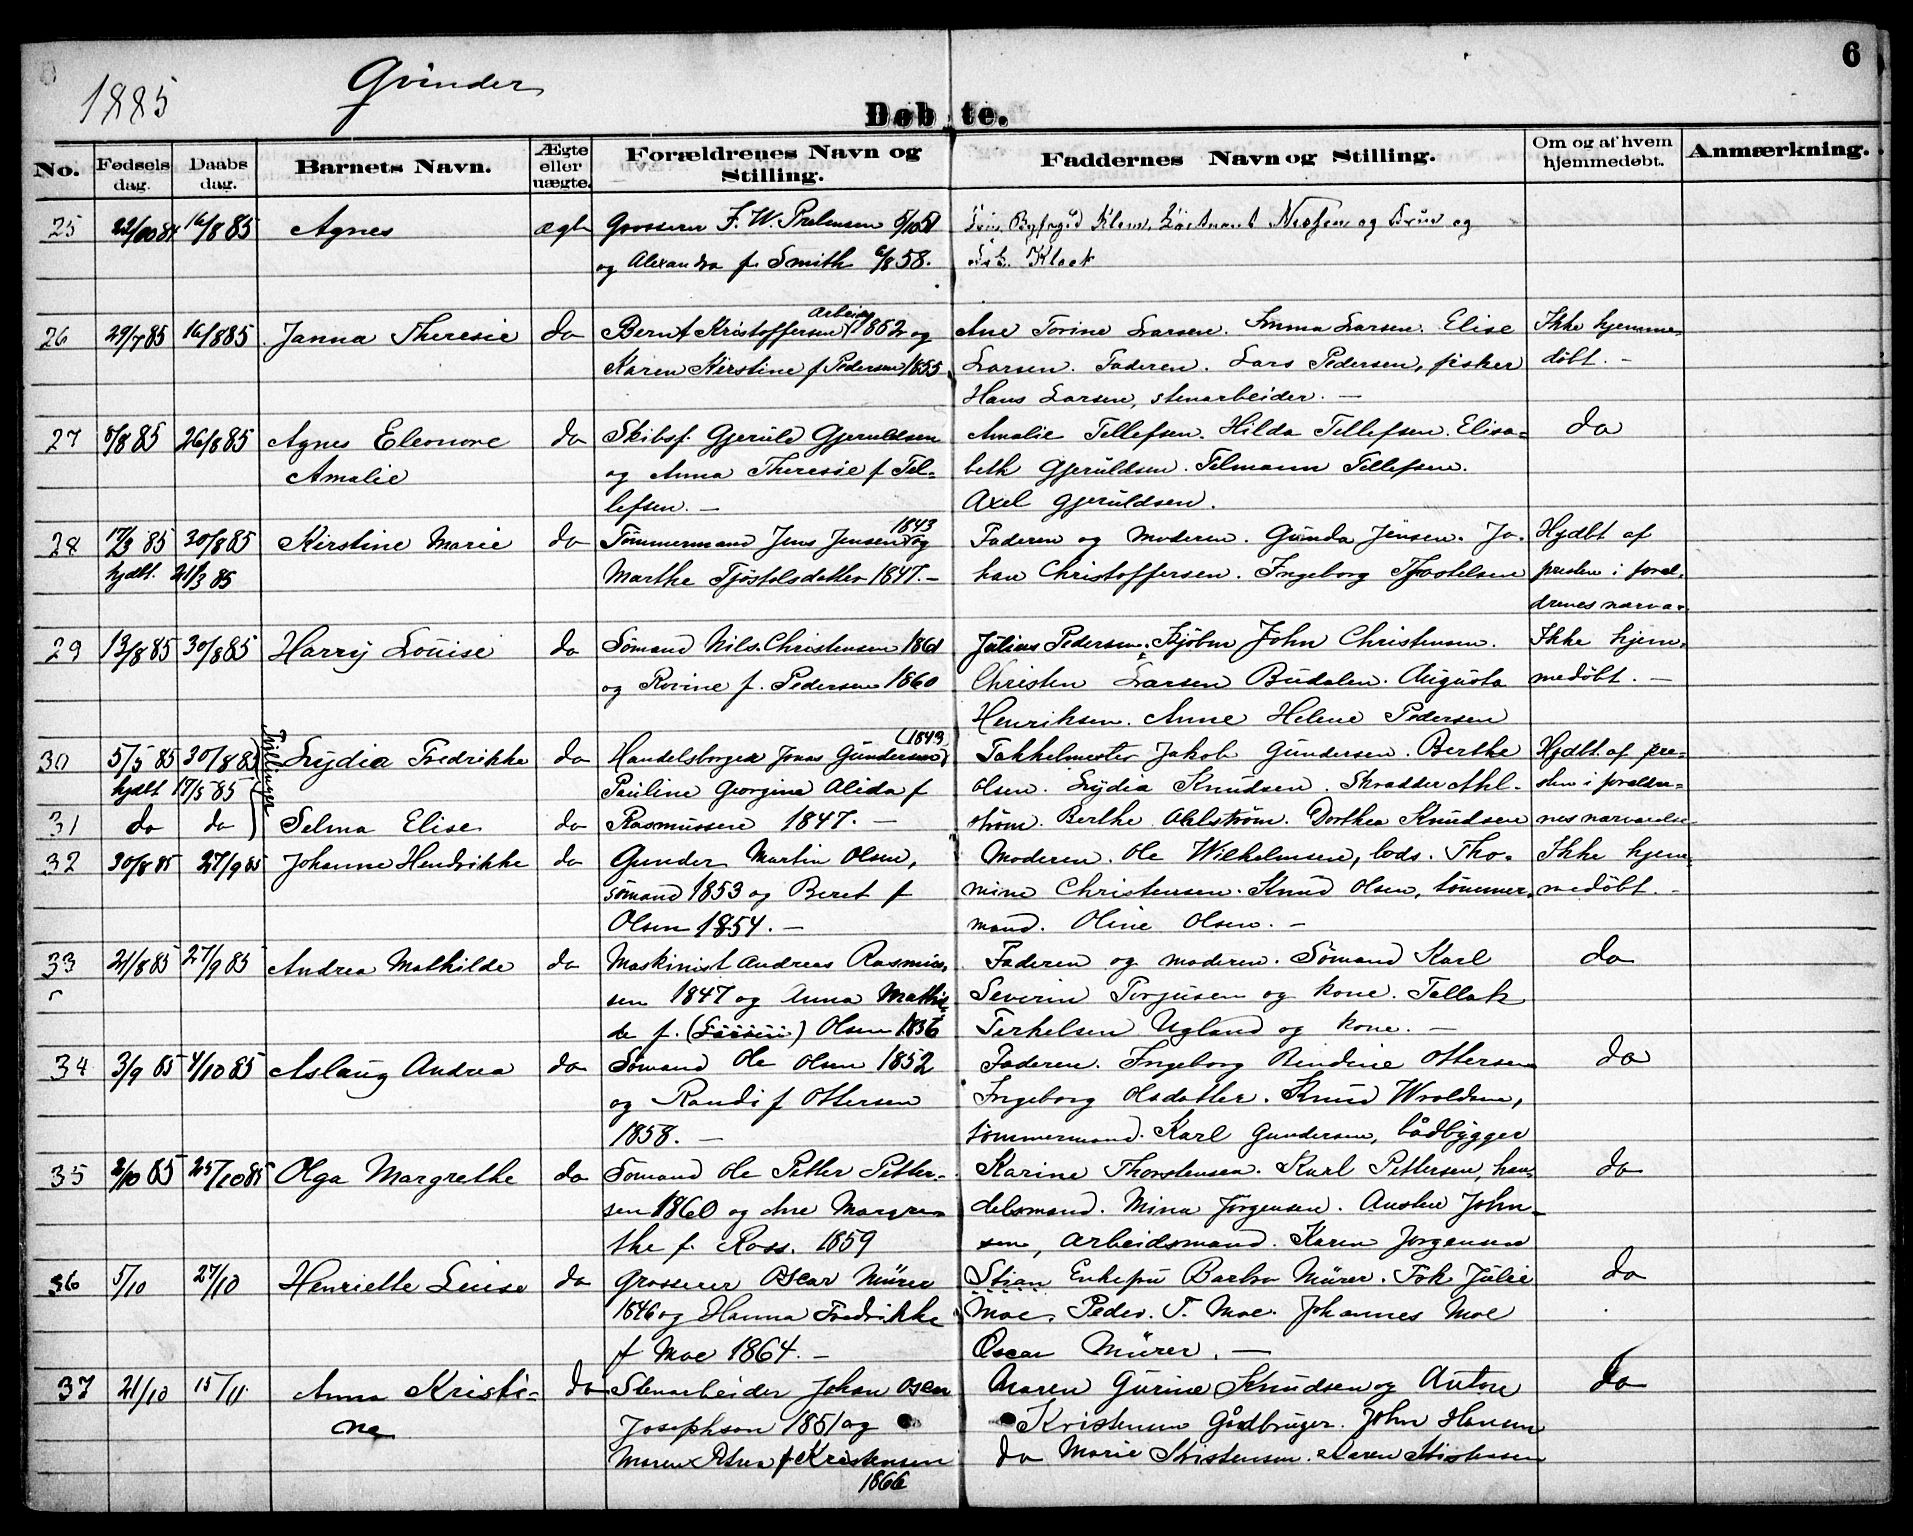 6
1885 Qvinder
Døbte.
No. Fødselsdag. Daabsdag. Barnets Navn. Ægte eller uægte. Forældrenes Navn og Stilling. Faddernes Navn og Stilling. Om og af hvem hjemmedøbt. Anmærkning.
25 22/10 84 16/8 85 Agnes ægte Grosserer F. W. og
og Alexandra f. Smith 6/8 58. Klock
26 29/7 85 16/8 85 Janna Theresie do Bernt Kristoffersen Arbeids 1852 og Ane Torine Larsen. Emma Larsen. Elise Ikke hjemme-
Karen Kirstine f Pedersen 1855 Larsen. Faderen. Lars Pedersen, fisker døbt. —
Hans Larsen, stenarbeider. —
27 5/8 85 26/8 85 Agnes Eleonore do Skibsf. Gjeruld Gjeruldsen Amalie Tellefsen. Hilda Tellefsen. Elisa- do
Amalie og Anna Theresie f Tel- beth Gjeruldsen. Telmann Tellefsen.
lefsen. — Axel Gjeruldsen.
28 17/3 85 30/8 85 Kirstine Marie do Tømmermand Jens Jensen 1843 og Faderen og Moderen. Gunda Jensen. Jo- Hjdbt af
hjdbt. 21/3 85 Marthe Tjøstolsdatter 1847. — han Christoffersen. Ingeborg Tjøstelsen presten i forel-
drenes nærvæ-
29 13/8 85 30/8 85 Harry Louise do Sømand Nils Christensen 1861 Julius Pedersen, Kjøbm John Christensen. Ikke hjem-
og Rorine f. Pedersen 1860 Christen Larsen Budalen. Augusta medøbt. —
Henriksen. Anne Helene Pedersen
30 5/5 85 30/8 85 Tvillinger Lydia Fredrikke do Handelsborger Jonas Gundersen (1843) Takkelmester Jakob Gundersen. Berthe Hjdbt. af pre-
hjdbt 17/5 85 Pauline Georgine Alida f Olsen. Lydia Knudsen. Skrædder Ahl- sten i forældre-
31 do do Selma Elise do Rasmussen 1847. — strøm. Berthe Ahlstrøm. Dorthea Knudsen nes nærværelse
32 30/8 85 27/9 85 Johanne Hendrikke do Gunder Martin Olsen, Moderen. Ole Wilhelmsen, lods. Tho- Ikke hjem-
sømand 1853 og Beret f mine Christensen. Knud Olsen, tømmer- medøbt. —
Olsen 1854. — mand. Oline Olsen. —
33 21/8 85 27/9 85 Andrea Mathilde do Maskinist Andreas Rasmus- Faderen og moderen. Sømand Karl do
sen 1847 og Anna Mathil- Severin Torjusen og kone. Tallak
de f. Olsen 1836 Terkelsen Ugland og kone. —
34 3/9 85 4/10 85 Aslaug Andrea do Sømand Ole Olsen 1852 Faderen. Ingeborg Rendine Ottersen do
og Randi f Ottersen Ingeborg Olsdatter. Knud Wroldsen,
1858. — tømmermand. Karl Gundersen, bådbygger
35 2/10 85 25/10 85 Olga Margrethe do Sømand Ole Petter Petter- Karine Thorstensen. Karl Pettersen, han- do
sen 1860 og Ane Margre- delsmand. Mina Jørgensen. Austen John-
the f. Ross. 1859 sen, arbeidsmand. Karen Jørgensen
36 5/10 27/10 Henriette Leuise do Grosserer Oscar Mürer Enkefru Barbro Mürer. Frk Julie do
1846 og Hanna Fredrikke Moe. Peder. T. Moe. Johannes Moe
f Moe 1864. — Oscar Mürer. —
37 21/10 15/11 Anna Kristi- do Stenarbeider Johan Oscar Maren Gurine Knudsen og Anton do
ne Josephson 1851 og Kristensen Gårdbruger. John Hansen
Maren f Kristensen do Marie Kristensen. Karen Kristensen
1866